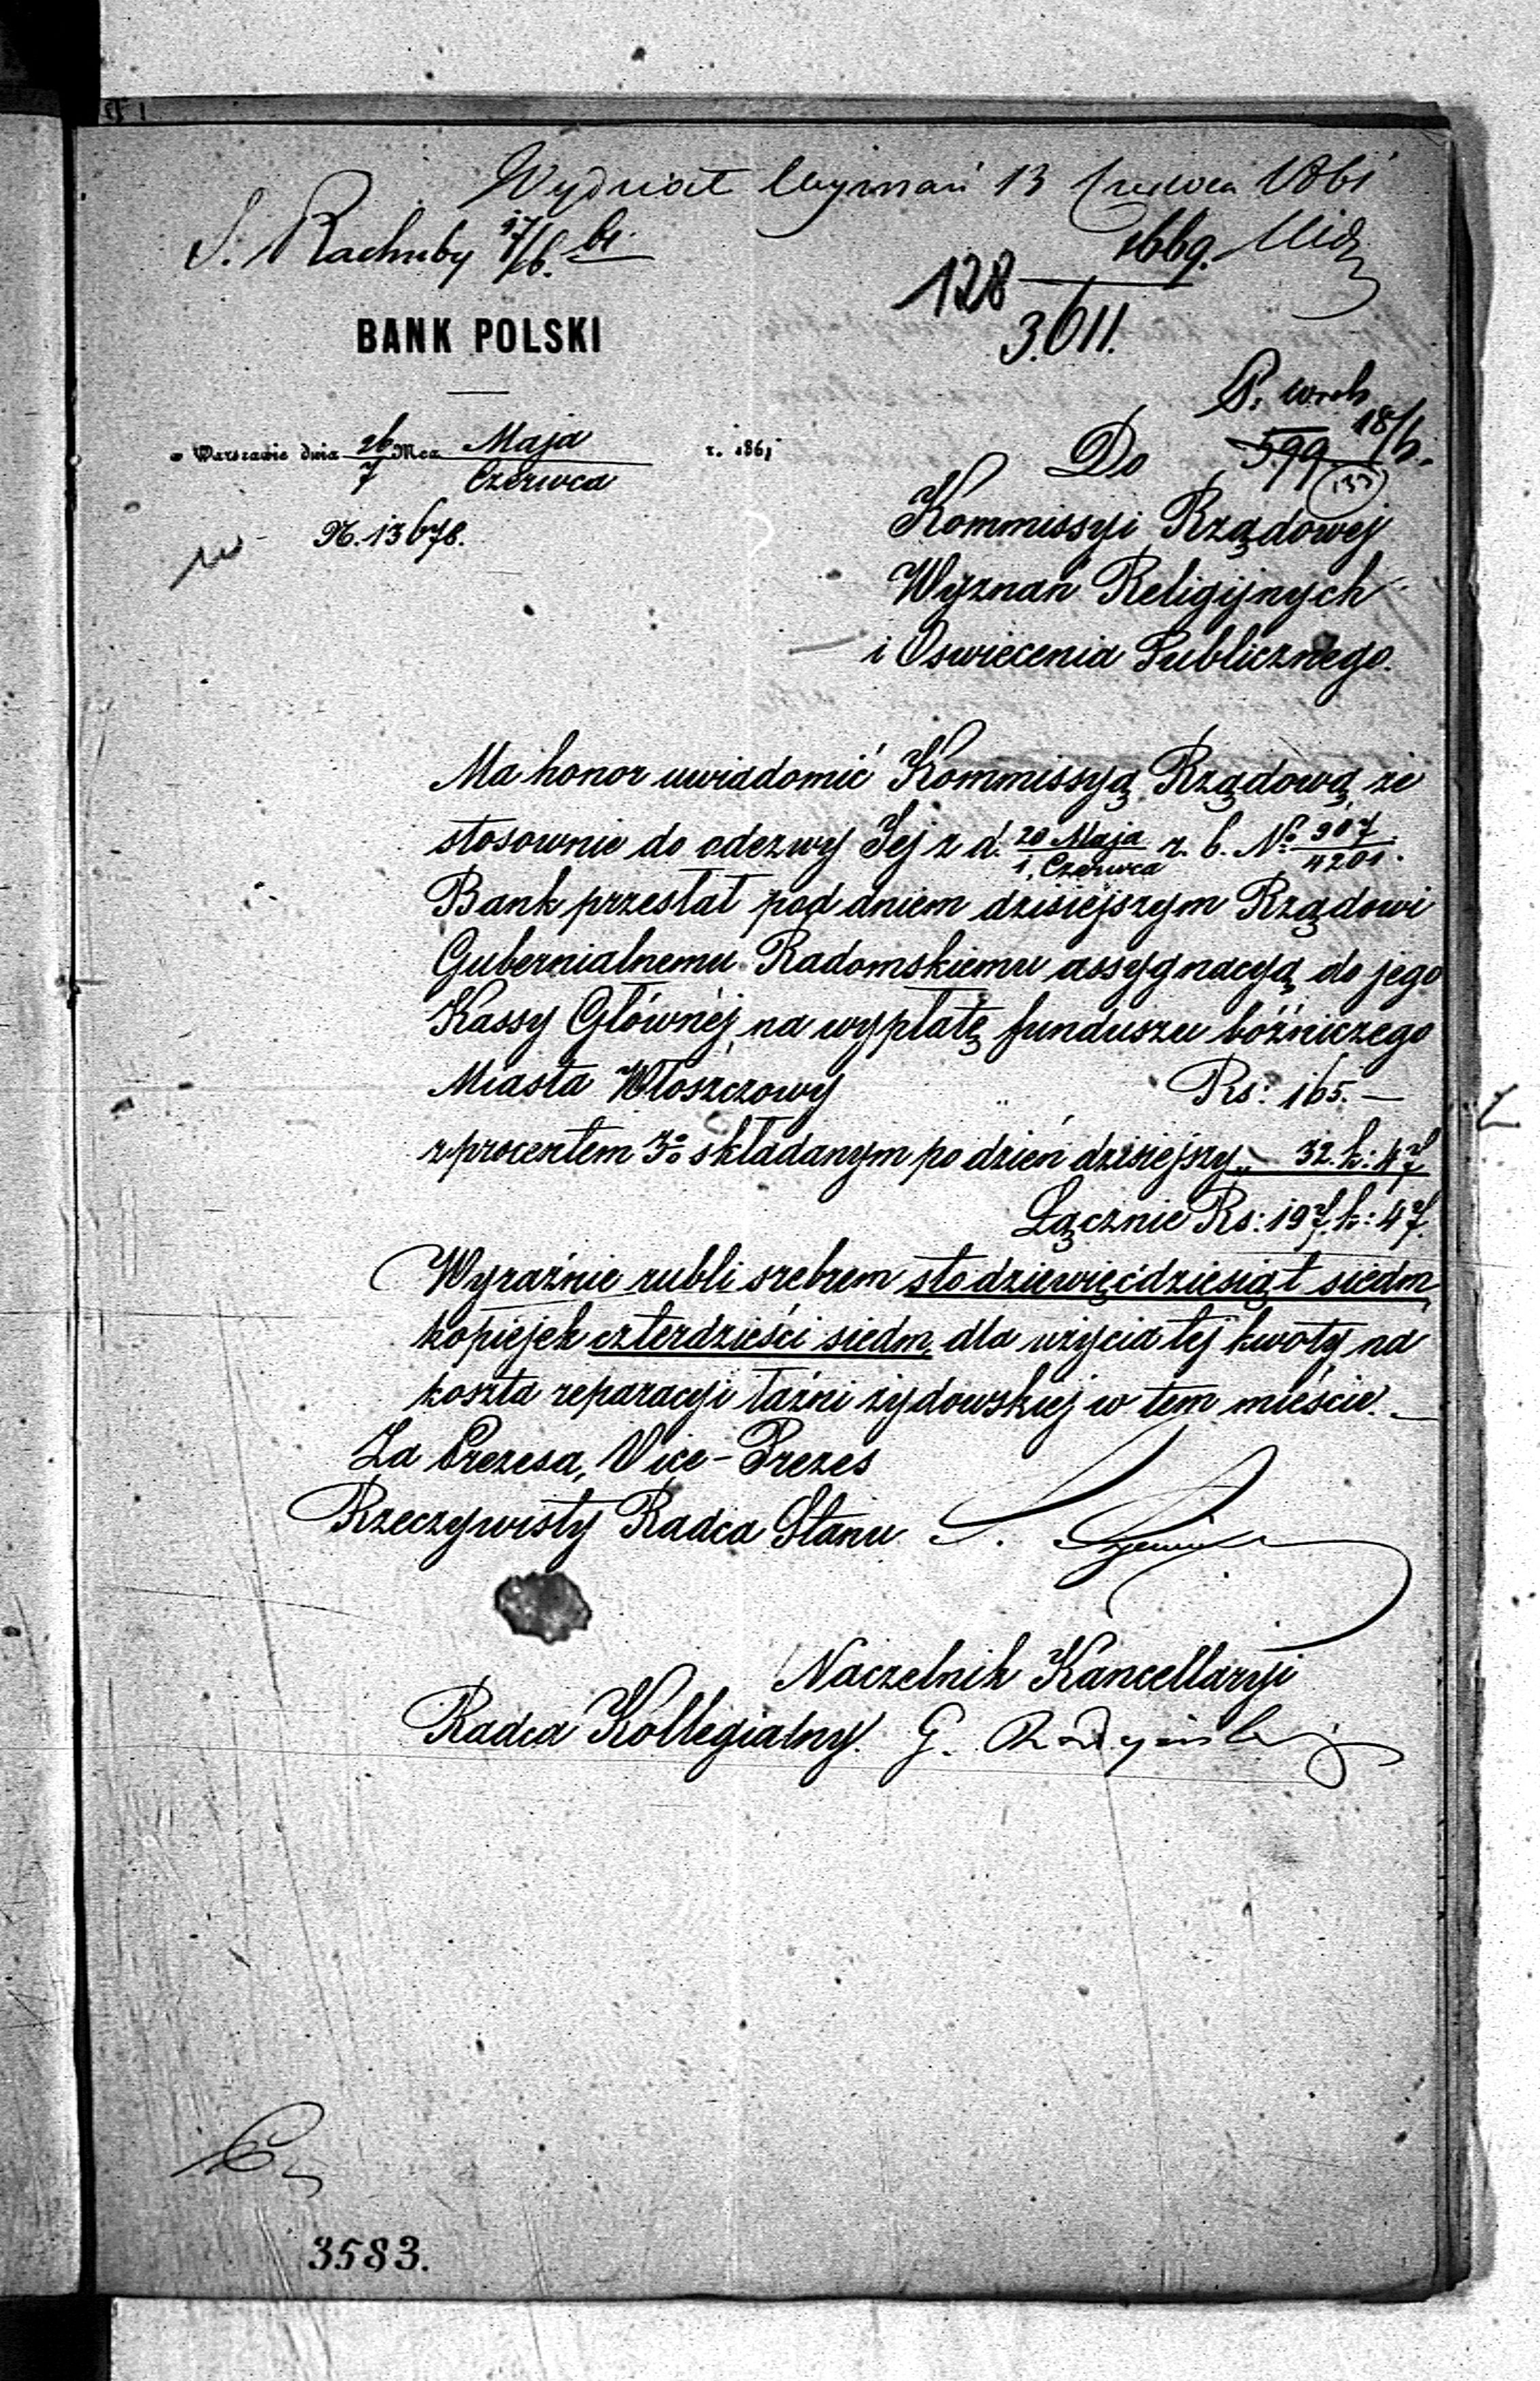 Wydział Wyznań 13 Czerwca 1861
S. Rachuby 17/6. 61.
1669.
128
3.611.
BANK POLSKI
S. 
18/6.
599
w Warszawie dnia 26/7 Mca Maja/Czerwca r. 1861
Do
133
N. 13678.
Kommissyi Rządowej
Wyznań Religijnych
i Oswiecenia Publicznego.
Ma honor uwiadomić Kommissyą Rządową, że
stosownie do odezwy Jej z d. 20 Maja/1. Czerwca r. b. No 907/4201.
Bank przesłał pod dniem dzisiejszym Rządowi
Gubernialnemu Radomskiemu assygnacyą do jego
Kassy Głównéj, na wypłatę funduszu bóźniczego
Miasta Włoszczowy " Rs: 165. —
z procentem 3% składanym po dzień dzisiejszy „ 32. k: 47
Łącznie Rs: 197. k: 47.
Wyraźnie rubli srebrem sto dziewięćdziesiąt siedm,
kopiejek czterdzieści siedm, dla użycia tej kwoty na
koszta reparacyi łaźni żydowskiej w tem mieście. —
Za Prezesa, Vice-Prezes
Rzeczywisty Radca Stanu
Naczelnik Kancellaryi
Radca Kollegialny. G.
3583.